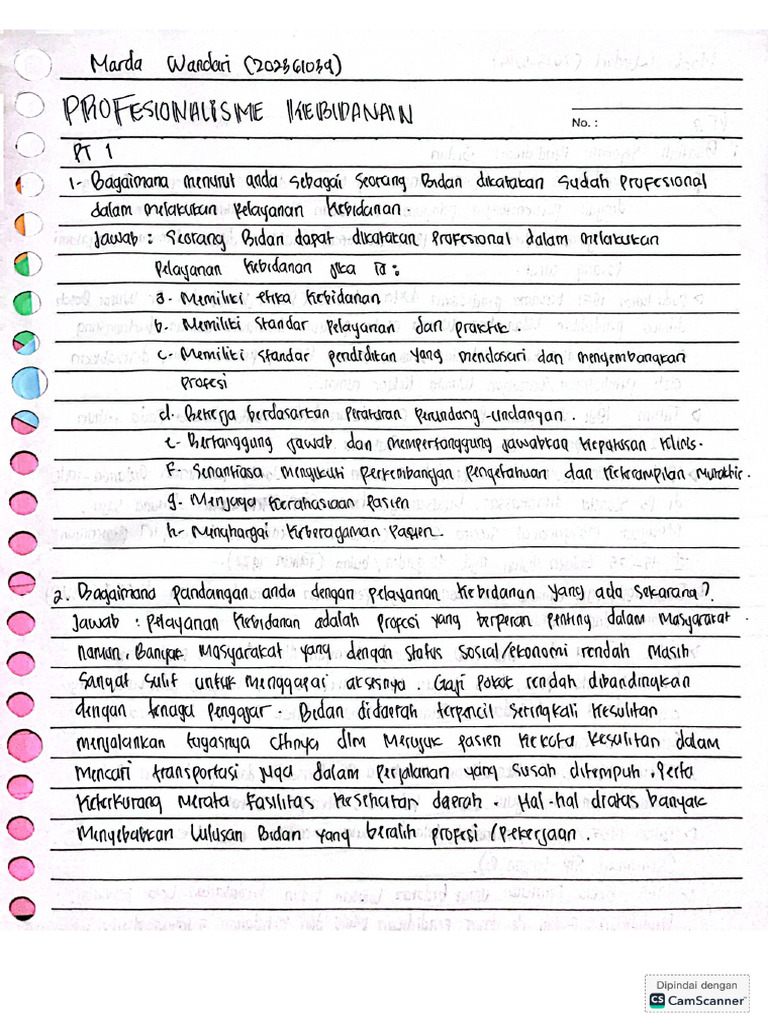 Marda Wandari (202361039)
PROFESIONALISME KEBIDANAIN
No. :
PT 1
1- Bagaimana menurut anda sebagai seorang Bidan dikatakan sudah profesional
dalam melakukan pelayanan kebidanan.
Jawab : Seorang Bidan dapat dikatakan profesional dalam melakukan
Pelayanan kebidanan jika :
a. Memiliki etika kebidanan
b. Memiliki standar pelayanan dan praktik.
c. Memiliki standar pendidikan yang mendasari dan mengembangkan
profesi
d. Bekerja berdasarkan peraturan perundang-undangan.
e. Bertanggung jawab dan mempertanggung jawabkan keputusan klinis.
F. Senantiasa mengikuti perkembangan pengetahuan dan keterampilan mutakhir.
g. Menjaga kerahasiaan pasien
h. Menghargai keberagaman pasien.
2. Bagaimana pandangan anda dengan pelayanan kebidanan yang ada sekarang?
Jawab : pelayanan kebidanan adalah profesi yang berperan penting dalam masyarakat.
namun, Banyak masyarakat yang dengan status sosial/ekonomi rendah masih
sangat sulit untuk menggapai aksesnya. Gaji pokok rendah dibandingkan
dengan tenaga pengajar. Bidan didaerah terpencil seringkali kesulitan
menjalankan tugasnya cthnya dlm merujuk pasien kekota kesulitan dalam
mencari transportasi juga dalam perjalanan yang susah ditempuh. Serta
keterkurang merata fasilitas kesehatan daerah. Hal-hal diatas banyak
menyebabkan lulusan Bidan yang beralih profesi/pekerjaan.
Dipindai dengan
CS CamScanner